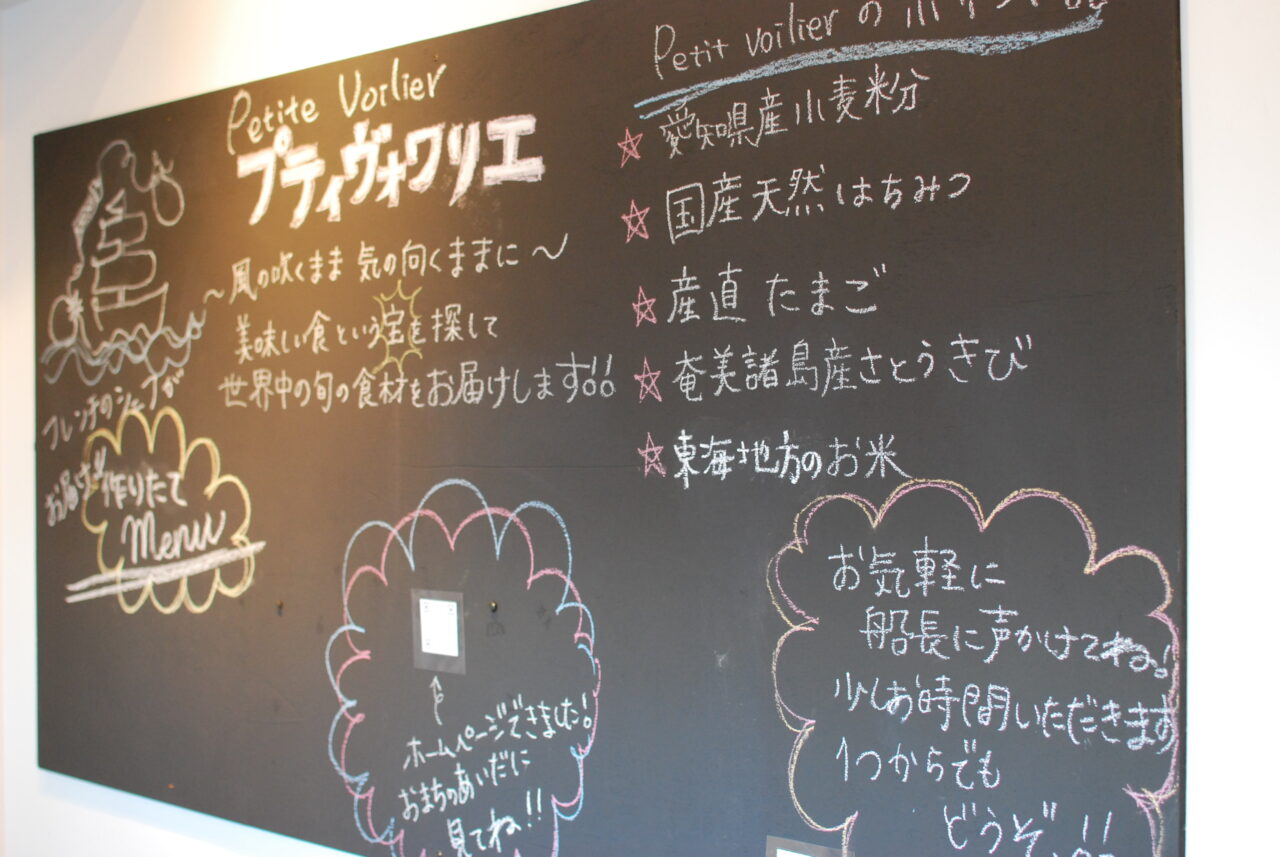 Petite Voilier
プティヴォワリエ
～風の吹くまま 気の向くままに～
美味しい食という宝を探して
世界中の旬の食材をお届けします!!
フレンチのシェフが
お届け!!作りたて
Menu
ホームページできました!
おまちのあいだに
見てね!!
Petit voilier の
愛知県産小麦粉
国産天然はちみつ
産直 たまご
奄美諸島産さとうきび
東海地方のお米
お気軽に
船長に声かけてね!
少しお時間いただきます
1つからでも
どうぞ!!